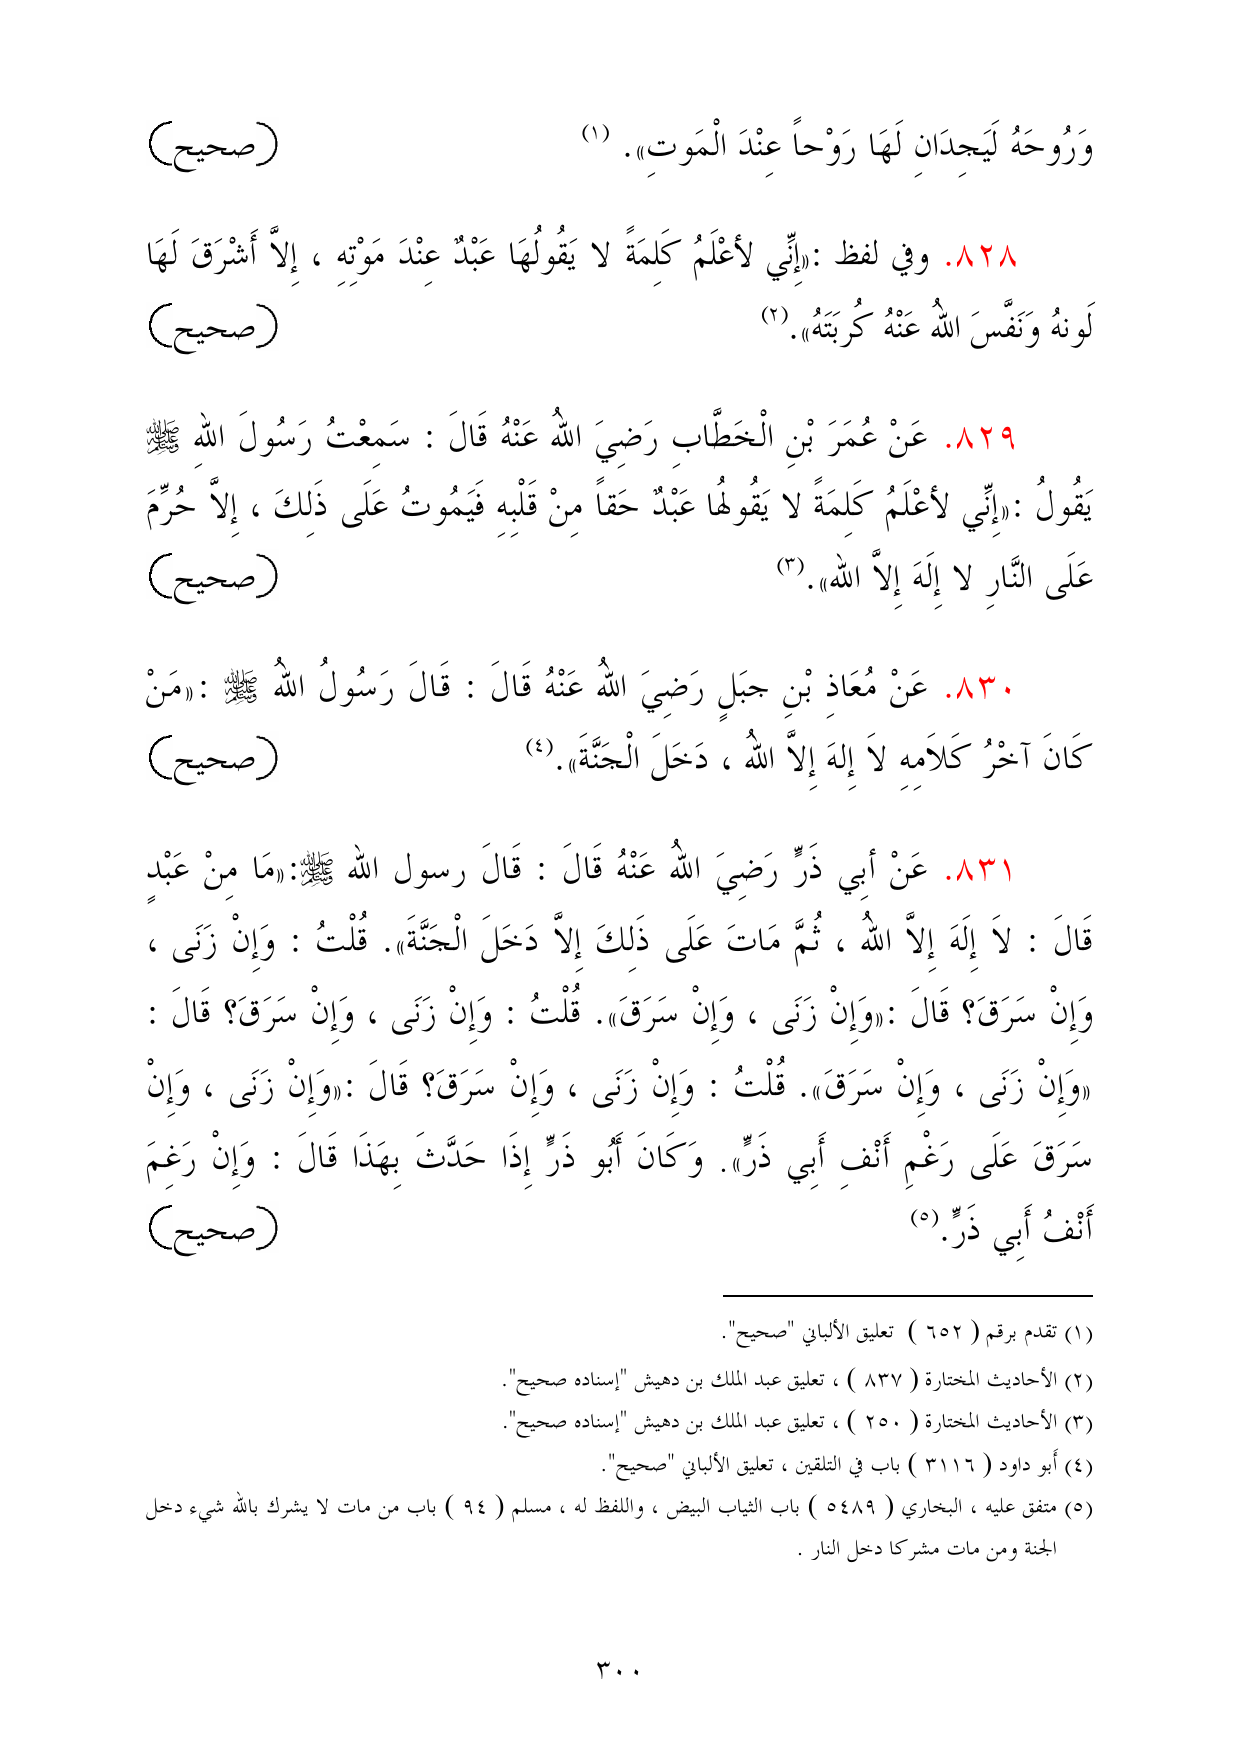 وَرُوحَهُ لَيَجِدَانِ لَهَا رَوْحاً عِنْدَ الْمَوتِ». (١) (صحيح)
٨٢٨. وفي لفظ :«إِنِّي لأعْلَمُ كَلِمَةً لا يَقُولُهَا عَبْدٌ عِنْدَ مَوْتِهِ ، إِلاَّ أَشْرَقَ لَهَا
لَونهُ وَنَفَّسَ اللهُ عَنْهُ كُرْبَتَهُ».(٢) (صحيح)
٨٢٩. عَنْ عُمَرَ بْنِ الْخَطَّابِ رَضِيَ اللهُ عَنْهُ قَالَ : سَمِعْتُ رَسُولَ اللهِ ﷺ
يَقُولُ :«إِنِّي لأعْلَمُ كَلِمَةً لا يَقُولُهَا عَبْدٌ حَقاً مِنْ قَلْبِهِ فَيَمُوتُ عَلَى ذَلِكَ ، إِلاَّ حُرِّمَ
عَلَى النَّارِ لا إِلَهَ إِلاَّ الله».(٣) (صحيح)
٨٣٠. عَنْ مُعَاذِ بْنِ جبَلٍ رَضِيَ اللهُ عَنْهُ قَالَ : قَالَ رَسُولُ اللهُ ﷺ :«مَنْ
كَانَ آخْرُ كَلاَمِهِ لاَ إِلهَ إِلاَّ اللهُ ، دَخَلَ الْجَنَّةَ».(٤) (صحيح)
٨٣١. عَنْ أبي ذَرٍّ رَضِيَ اللهُ عَنْهُ قَالَ : قَالَ رسول الله ﷺ:«مَا مِنْ عَبْدٍ
قَالَ : لاَ إِلَهَ إِلاَّ اللهُ ، ثُمَّ مَاتَ عَلَى ذَلِكَ إِلاَّ دَخَلَ الْجَنَّةَ». قُلْتُ : وَإِنْ زَنَى ،
وَإِنْ سَرَقَ؟ قَالَ :«وَإِنْ زَنَى ، وَإِنْ سَرَقَ». قُلْتُ : وَإِنْ زَنَى ، وَإِنْ سَرَقَ؟ قَالَ :
«وَإِنْ زَنَى ، وَإِنْ سَرَقَ». قُلْتُ : وَإِنْ زَنَى ، وَإِنْ سَرَقَ؟ قَالَ :«وَإِنْ زَنَى ، وَإِنْ
سَرَقَ عَلَى رَغْمِ أَنْفِ أَبِي ذَرٍّ». وَكَانَ أَبُو ذَرٍّ إِذَا حَدَّثَ بِهَذَا قَالَ : وَإِنْ رَغِمَ
أَنْفُ أَبِي ذَرٍّ.(٥) (صحيح)
(١) تقدم برقم ( ٦٥٢ ) تعليق الألباني "صحيح".
(٢) الأحاديث المختارة ( ٨٣٧ ) ، تعليق عبد الملك بن دهيش "إسناده صحيح".
(٣) الأحاديث المختارة ( ٢٥٠ ) ، تعليق عبد الملك بن دهيش "إسناده صحيح".
(٤) أَبو داود ( ٣١١٦ ) باب في التلقين ، تعليق الألباني "صحيح".
(٥) متفق عليه ، البخاري ( ٥٤٨٩ ) باب الثياب البيض ، واللفظ له ، مسلم ( ٩٤ ) باب من مات لا يشرك بالله شيء دخل
الجنة ومن مات مشركا دخل النار .
٣٠٠